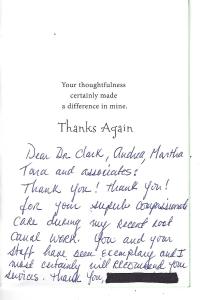 Your thoughtfulness
certainly made
a difference in mine.
Thanks Again
Dear Dr. Clark, Andrea, Martha
Tara and associates:
Thank you! Thank you!
for your superb compassionate
care during my recent root
canal work. You and your
staff have been exemplary and I
most certainly will recommend your
services. Thank you,